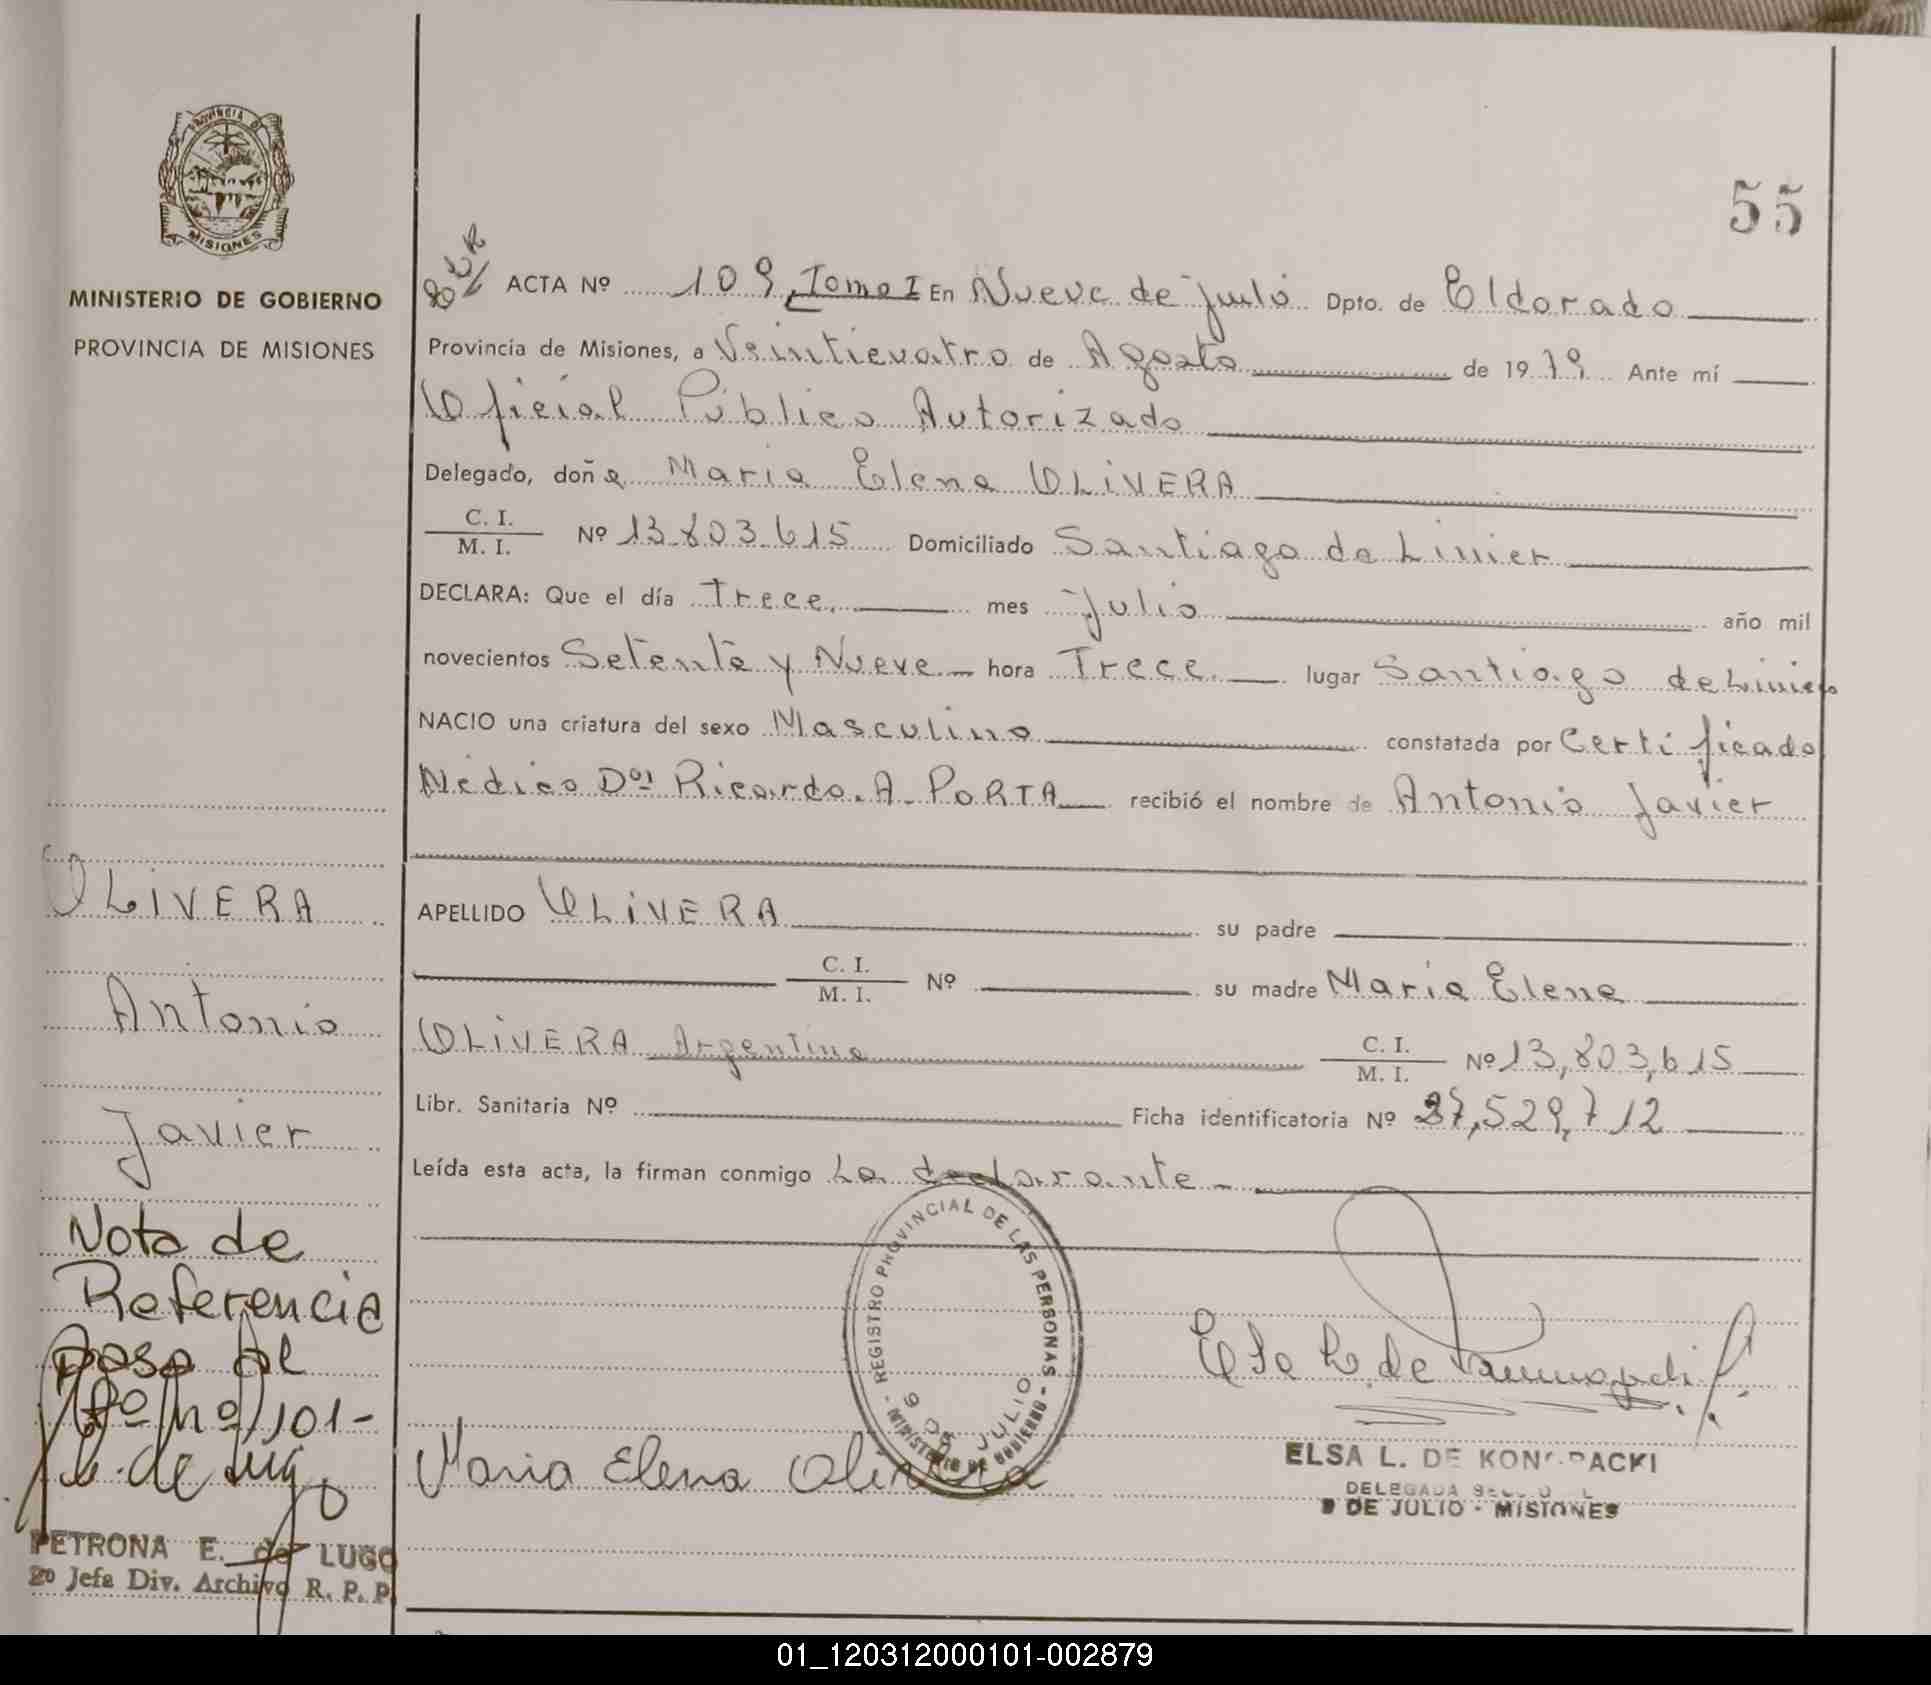 PROVINCIA DE
MISIONES
MINISTERIO DE GOBIERNO
PROVINCIA DE MISIONES
55
ACTA Nº 109 Tomo I En Nueve de julio Dpto. de Eldorado
Provincia de Misiones, a Veinticuatro de Agosto de 1979 Ante mí
Oficial Público Autorizado
Delegado, doña Maria Elena OLIVERA
C. I.
M. I. Nº 13.803.615 Domiciliado Santiago de Linier
DECLARA: Que el día Trece mes julio año mil
novecientos Setenta y Nueve hora Trece lugar Santiago de Liniers
NACIO una criatura del sexo Masculino constatada por Certificado
Médico Dor Ricardo. A. PORTA recibió el nombre de Antonio Javier
APELLIDO OLIVERA su padre
C. I.
M. I. Nº su madre Maria Elena
OLIVERA Argentina C. I.
M. I. Nº 13,803,615
Libr. Sanitaria Nº Ficha identificatoria Nº 27,529,712
Leída esta acta, la firman conmigo La declarante
OLIVERA
Antonio
Javier
Nota de
Referencia
Pasa al
Fº nº 101-
de Lugo
PETRONA E. de LUGO
2º Jefa Div. Archivo R. P. P.
REGISTRO PROVINCIAL DE LAS PERSONAS
9 DE JULIO
MINISTERIO DE GOBIERNO
Maria Elena Olivera
ELSA L. DE KON PACKI
DELEGADA
9 DE JULIO - MISIONES
01_120312000101-002879